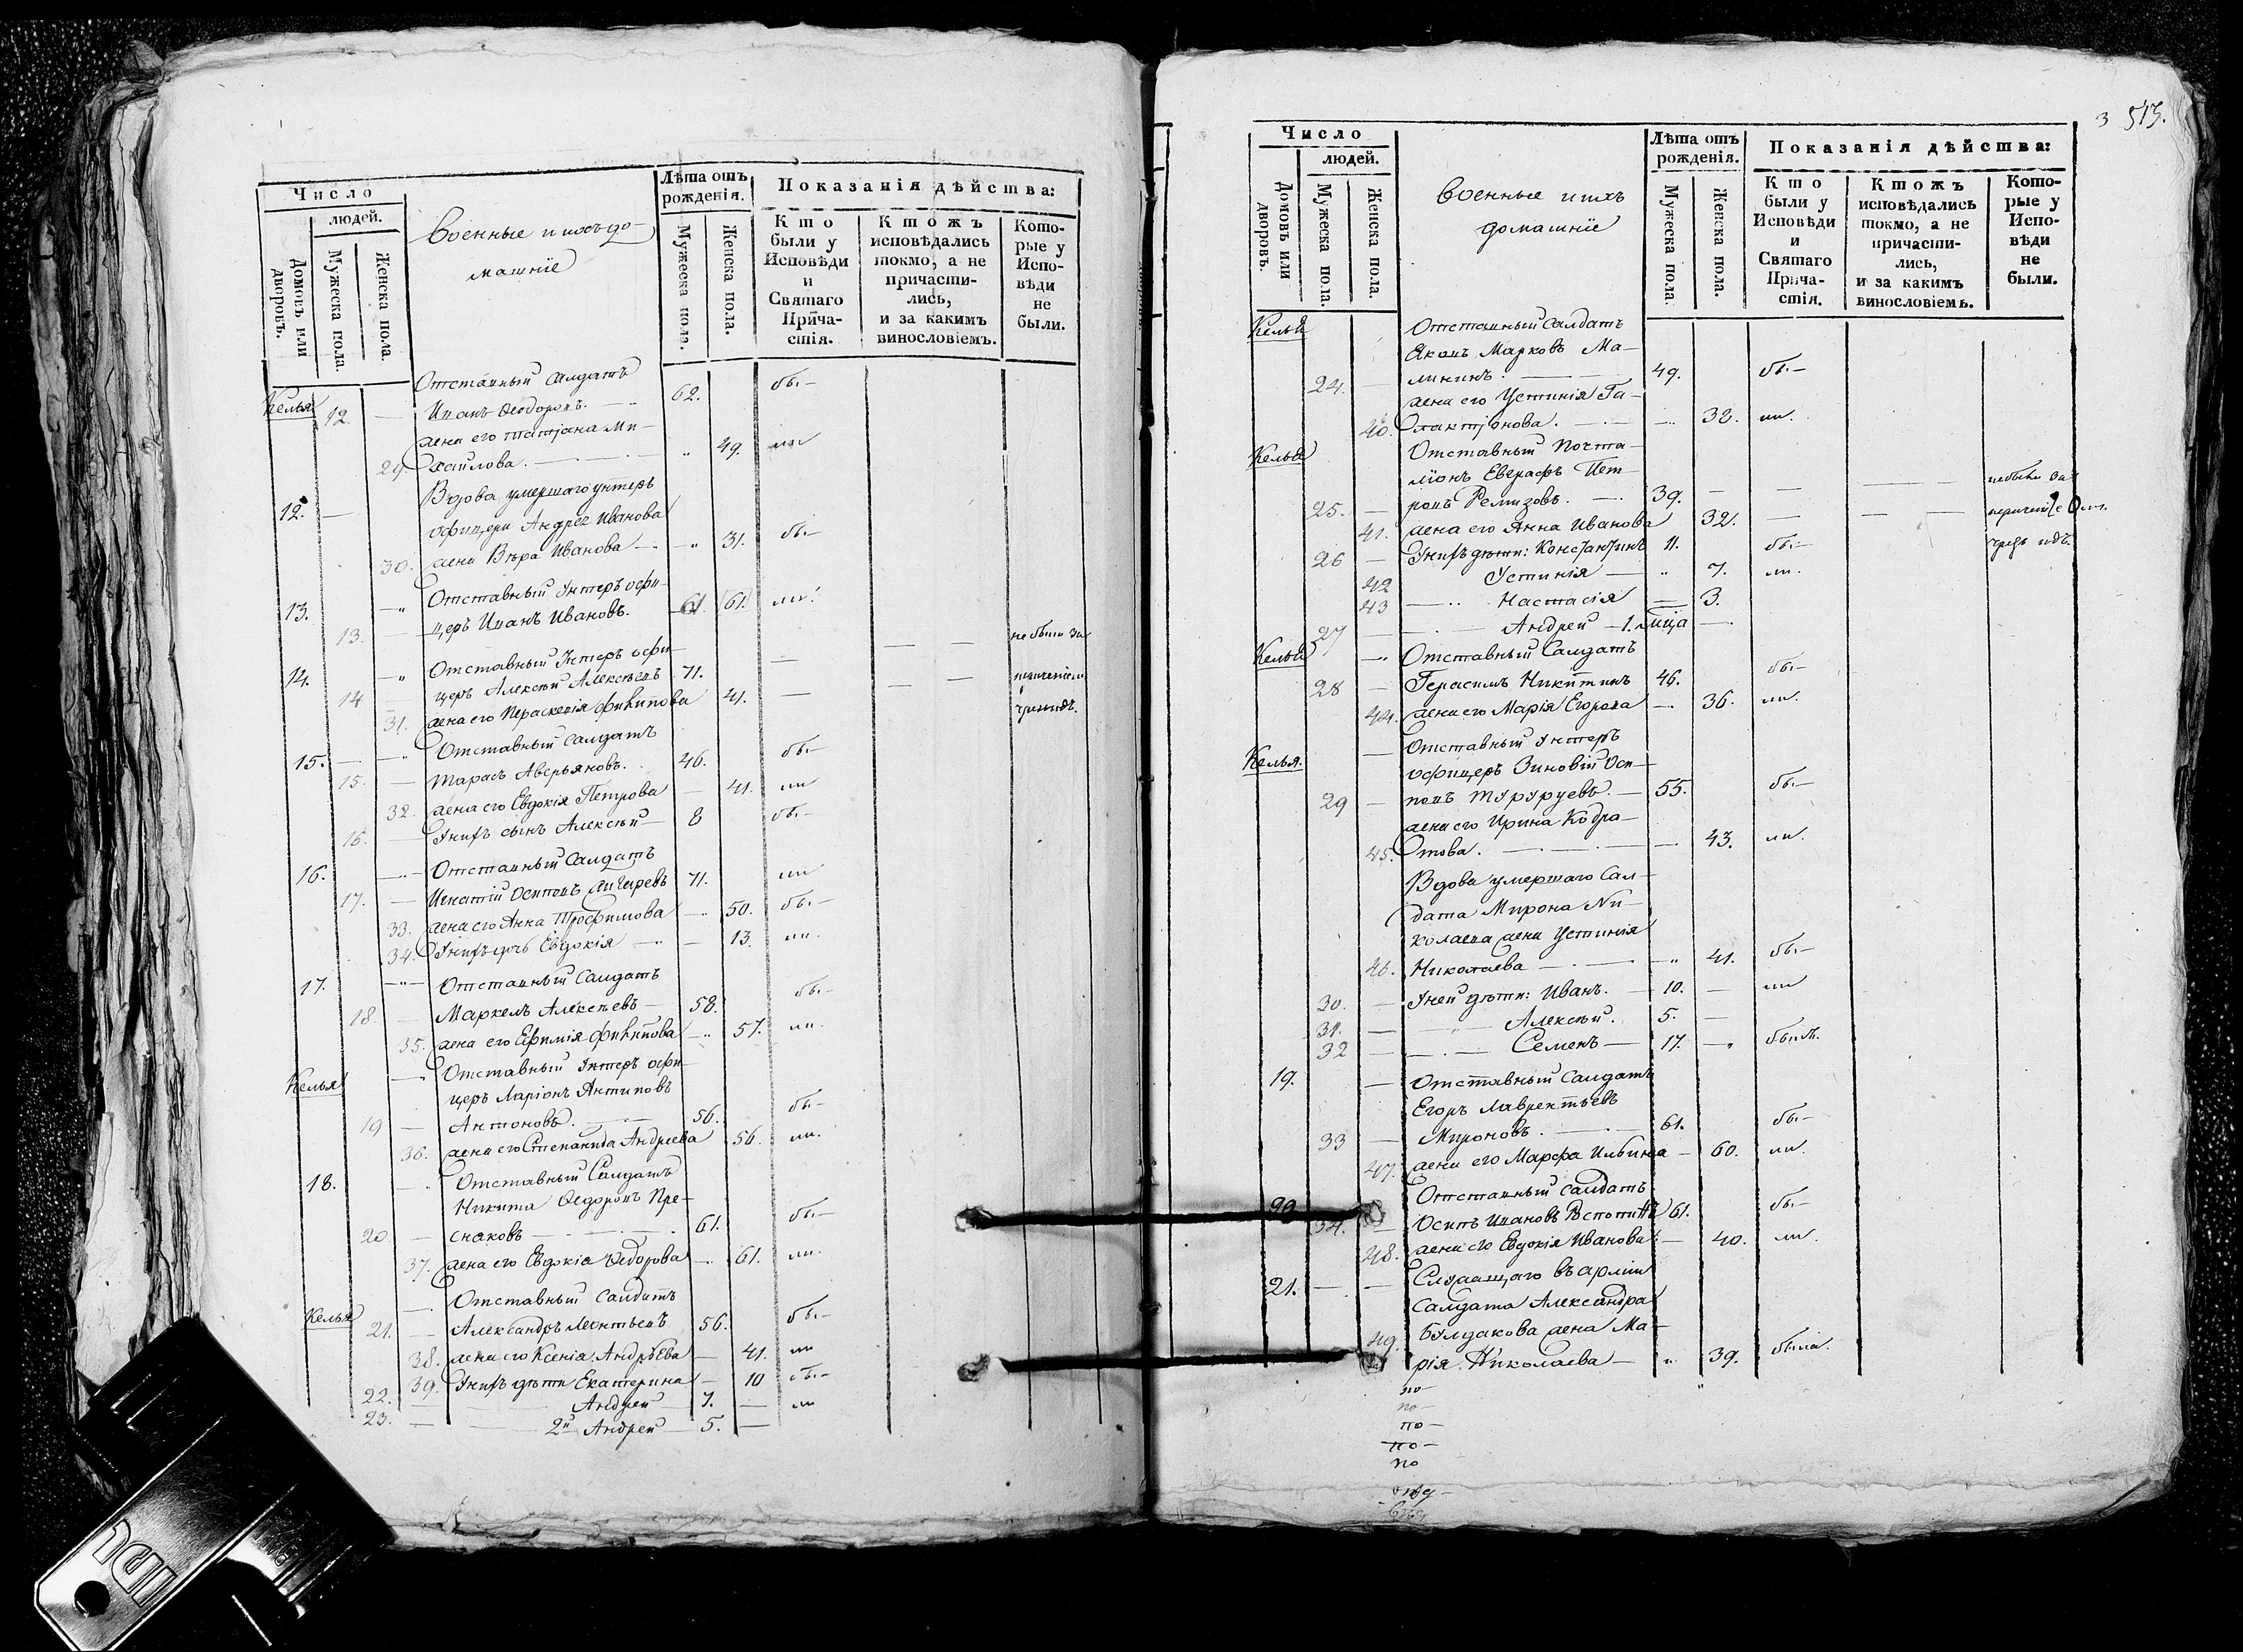 Число
людей.
Домовъ или дворовъ.
Мужеска пола.
Женска пола.
Военные и ихъ до-
машніе
Лѣта отъ рожденія.
Мужеска пола.
Женска пола.
Показанія дѣйства:
Кто были у Исповѣди и Святаго Прича-стія.
Ктожъ исповѣдались токмо, а не причасти-лись, и за какимъ винословіемъ.
Кото-рые у Испо-вѣди не были.
Отставный Салдатъ
Келья 12. — Иванъ Ѳеодоровъ. — 62. бы.—
жена его татіана Ми-
29. хаилова. — " 49. ли
12. — Вдова умершаго унтеръ
офицера Андрея Иванова
30. жена Вѣра Иванова — " 31. бы.—
13. — " Отставный Унтеръ офи-
13. — церъ Иванъ Ивановъ. 61. 61. ли.
14. — " Отставный Унтеръ офи-
14 — церъ Алексѣй Алексѣевъ 71. — — не были за
31. жена его Параскевія филипова 41. — —
15. — " Отставный Салдатъ
15. — Тарасъ Аверьяновъ. 46. бы.—
32. жена его Евдокія Петрова — 41. ли
16. — У нихъ сынъ Алексѣй — 8 бы.—
16. — " — Отставный Салдатъ
17. — Игнатій Осиповъ 71. ли
33. жена его Анна Трофимова — 50. бы.—
34. У нихъ дочь Евдокія — 13. ли.
17. — " — Отставный Салдатъ
18. — Маркелъ Алексѣевъ — 58. бы.—
35. жена его Ефимія филипова — " 57. ли.
Келья — Отставный Унтеръ офи-
церъ Ларіонъ Антиповъ
19 — Антоновъ. — 56. бы.—
36. жена его Степанида Андреева 56. ли.
18. — Отставный Салдатъ
Никита Ѳедоровъ Пре-
20. — снаковъ — 61. бы.—
37. жена его Евдокіа Ѳедорова — 61. ли.
— Отставный Салдатъ
Келья 21. — Александръ Леонтьевъ 56. бы.—
38. жена его Ксенія Андрѣева — 41. ли
39. У нихъ дѣти Екатерина — 10 бы.—
22. — Андрей — 7. — ли
23. — 2й Андрей — 5. —
3 513.
Число
людей.
Домовъ или дворовъ.
Мужеска пола.
Женска пола.
Военные и ихъ
домашніе
Лѣта отъ рожденія.
Мужеска пола.
Женска пола.
Показанія дѣйства:
Кто были у Исповѣди и Святаго Прича-стія.
Ктожъ исповѣдались токмо, а не причасти-лись, и за какимъ винословіемъ.
Кото-рые у Испо-вѣди не были.
Келья Отставный Салдатъ
Яковъ Марковъ Ма-
24. — лининъ. — 49. бы.—
жена его Устинія Га-
40. лактіонова. — " 38. ли.
Келья Отставный Почта-
ліонъ Евграфъ Пет-
25. — ровъ Ремизовъ. — 39. — — — не были за
41. жена его Анна Иванова 32. — — —
26 — У нихъ дѣти: Константинъ 11. бы.—
42 Устинія — " 7. ли.
43 — " Настасія — 3.
27 — Андрей — 1. —
Келья — " Отставный Салдатъ
28 — Герасимъ Никитинъ 46. бы.—
44. жена его Марія Егорова — 36. ли.
Келья. — Отставный Унтеръ
офицеръ Зиновій Оси-
29 — повъ Туруруевъ. — 55. бы.—
жена его Ирина Кодра-
45. това. — 43. ли.
Вдова умершаго Сал-
дата Мирона Ни-
колаева жена Устинія
46. Николаева — " 41. бы.—
30. — У ней дѣти: Иванъ. — 10. — ли
31. — " Алексѣй. 5. —
32 — Семенъ — 17. — " былъ.
19. — Отставный Салдатъ
Егоръ Лаврентьевъ
33 — Мироновъ. — 61. бы.—
47. жена его Марфа Ильина — 60. ли.
20 Отставный Салдатъ
34. — Осипъ Ивановъ 61. бы.—
48. жена его Евдокія Иванова — 40. ли.
21. — — Служащаго въ арміи
Салдата Александра
Булдакова жена Ма-
49. рія Николаева — " 39. была.
по —
по —
по —
по —
по